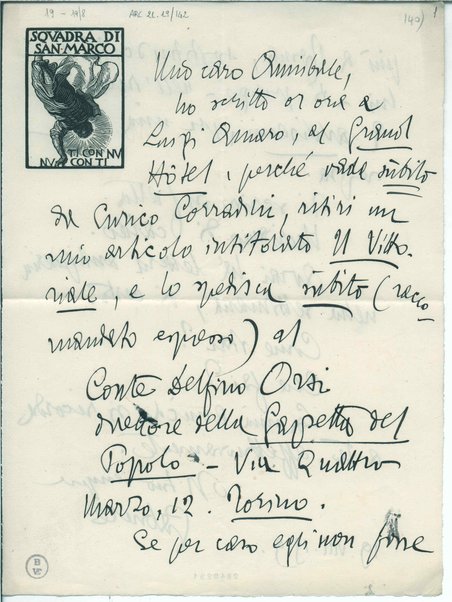 19 - 19/8
ARC 21. 19/142
140)
1
SQVADRA DI
SAN MARCO
TI CON NV
NV CON TI
Mio caro Annibale,
ho scritto or ora a
Luigi Amaro, al Grand
Hôtel, perché vada subito
da Enrico Corradini, ritiri un
mio articolo intitolato Il Vitto-
riale, e lo spedisca subito (racco-
mandato espresso) al
Conte Delfino Orsi
direttore della Gazzetta del
Popolo - Via Quattro
Marzo, 12. Torino.
Se per caso egli non fosse
B
VE